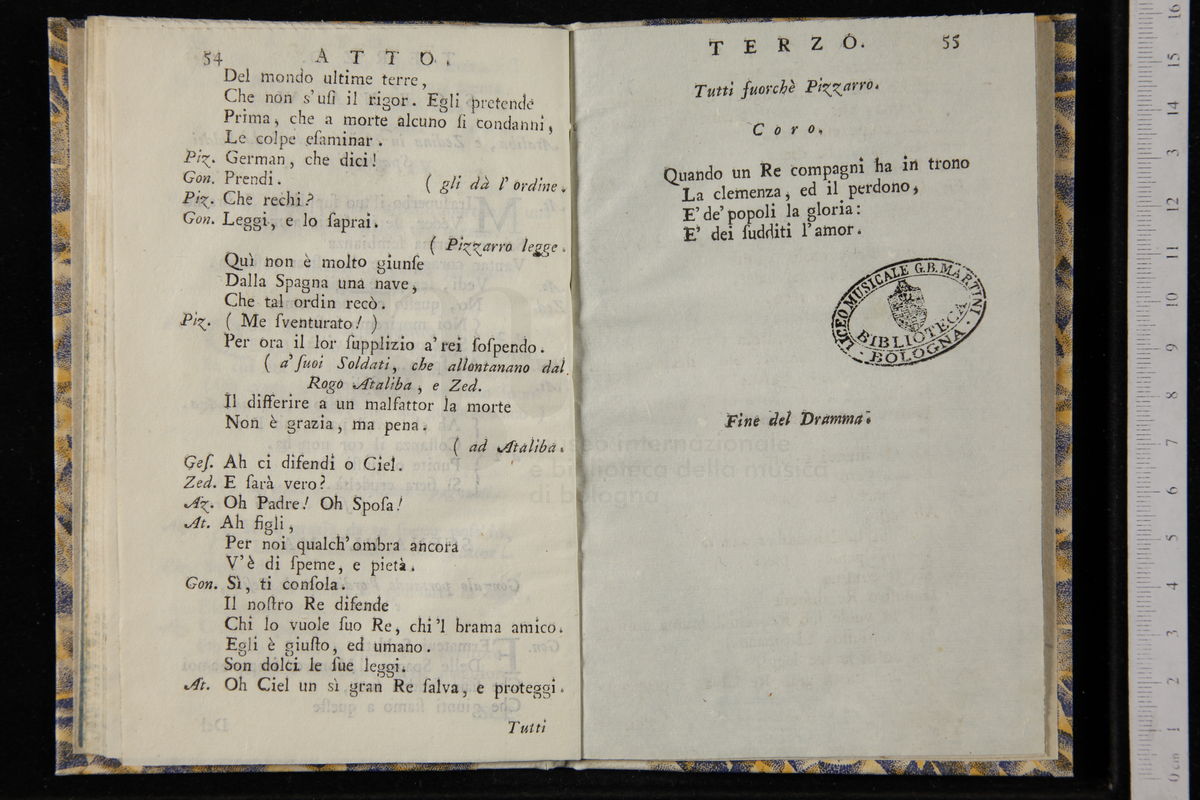 54 ATTO.
Del mondo ultime terre,
Che non s'uſi il rigor. Egli pretende
Prima, che a morte alcuno ſi condanni,
Le colpe eſaminar.
Piz. German, che dici!
Gon. Prendi. ( gli dà l'ordine.
Piz. Che rechi?
Gon. Leggi, e lo ſaprai.
( Pizzarro legge.
Quì non è molto giunſe
Dalla Spagna una nave,
Che tal ordin recò.
Piz. ( Me ſventurato! )
Per ora il lor ſupplizio a' rei ſoſpendo.
( a' ſuoi Soldati, che allontanano dal
Rogo Ataliba, e Zed.
Il differire a un malfattor la morte
Non è grazia, ma pena.
( ad Ataliba.
Geſ. Ah ci difendi o Ciel.
Zed. E ſarà vero?
Az. Oh Padre! Oh Spoſa!
At. Ah figli,
Per noi qualch' ombra ancora
V'è di ſpeme, e pietà.
Gon. Sì, ti conſola.
Il noſtro Re difende
Chi lo vuole ſuo Re, chi 'l brama amico.
Egli è giuſto, ed umano.
Son dolci le ſue leggi.
At. Oh Ciel un sì gran Re ſalva, e proteggi.
Tutti
TERZO. 55
Tutti fuorchè Pizzarro.
Coro.
Quando un Re compagni ha in trono
La clemenza, ed il perdono,
E' de' popoli la gloria:
E' dei ſudditi l'amor.
LICEO MUSICALE G.B. MARTINI
BIBLIOTECA
· BOLOGNA ·
Fine del Dramma.
museo internazionale
e biblioteca della musica
di bologna
16
15
14
13
12
11
10
9
8
7
6
5
4
3
2
1
0 cm